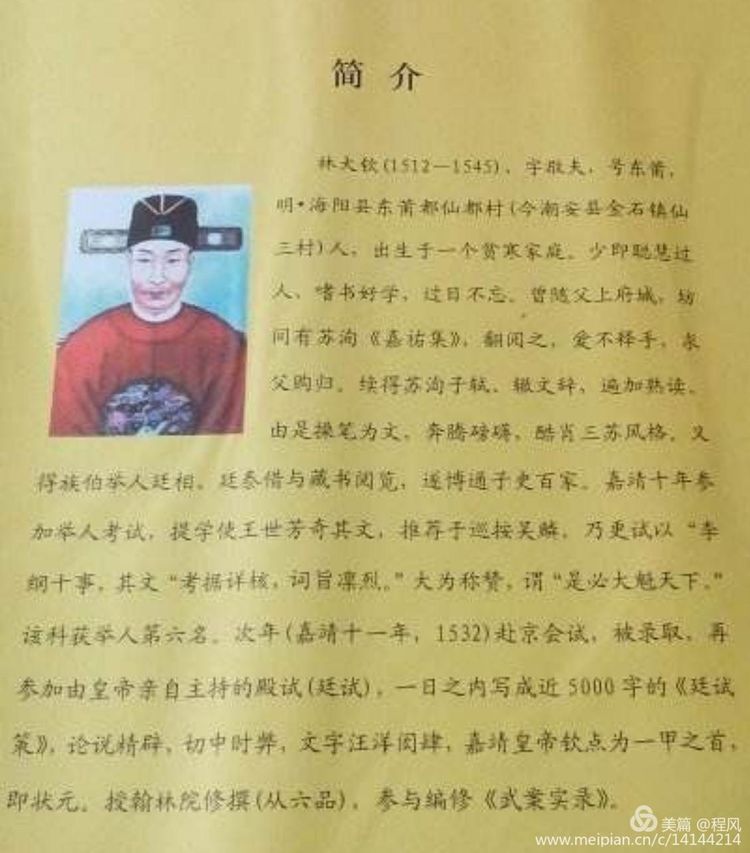 简 介
林大钦(1512—1545)，字敬夫，号东莆，
明·海阳县东莆都仙都村(今潮安县金石镇仙
三村)人，出生于一个贫寒家庭。少即聪慧过
人，嗜书好学，过目不忘。曾随父上府城，坊
间有苏洵《嘉祐集》，翻阅之，爱不释手，求
父购归。续得苏洵子轼、辙文辞，遍加熟读。
由是操笔为文，奔腾磅礴，酷肖三苏风格。又
得族伯举人廷相、廷泰借与藏书阅览，遂博通子史百家。嘉靖十年参
加举人考试，提学使王世芳奇其文，推荐于巡按吴麟，乃更试以“李
纲十事，其文“考据详核，词旨凛烈。”大为称赞，谓“是必大魁天下。”
该科获举人第六名。次年(嘉靖十一年，1532)赴京会试，被录取，再
参加由皇帝亲自主持的殿试(廷试)，一日之内写成近5000字的《廷试
策》，论说精辟，切中时弊，文字汪洋闳肆，嘉靖皇帝钦点为一甲之首，
即状元。授翰林院修撰(从六品)，参与编修《武案实录》。
美篇 @程风
www.meipian.cn/c/14144214